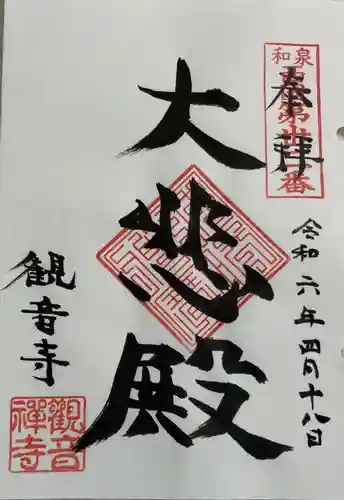 奉拝
和泉
西国第廿番
大悲殿
令和六年四月十八日
観音寺
觀音禪寺